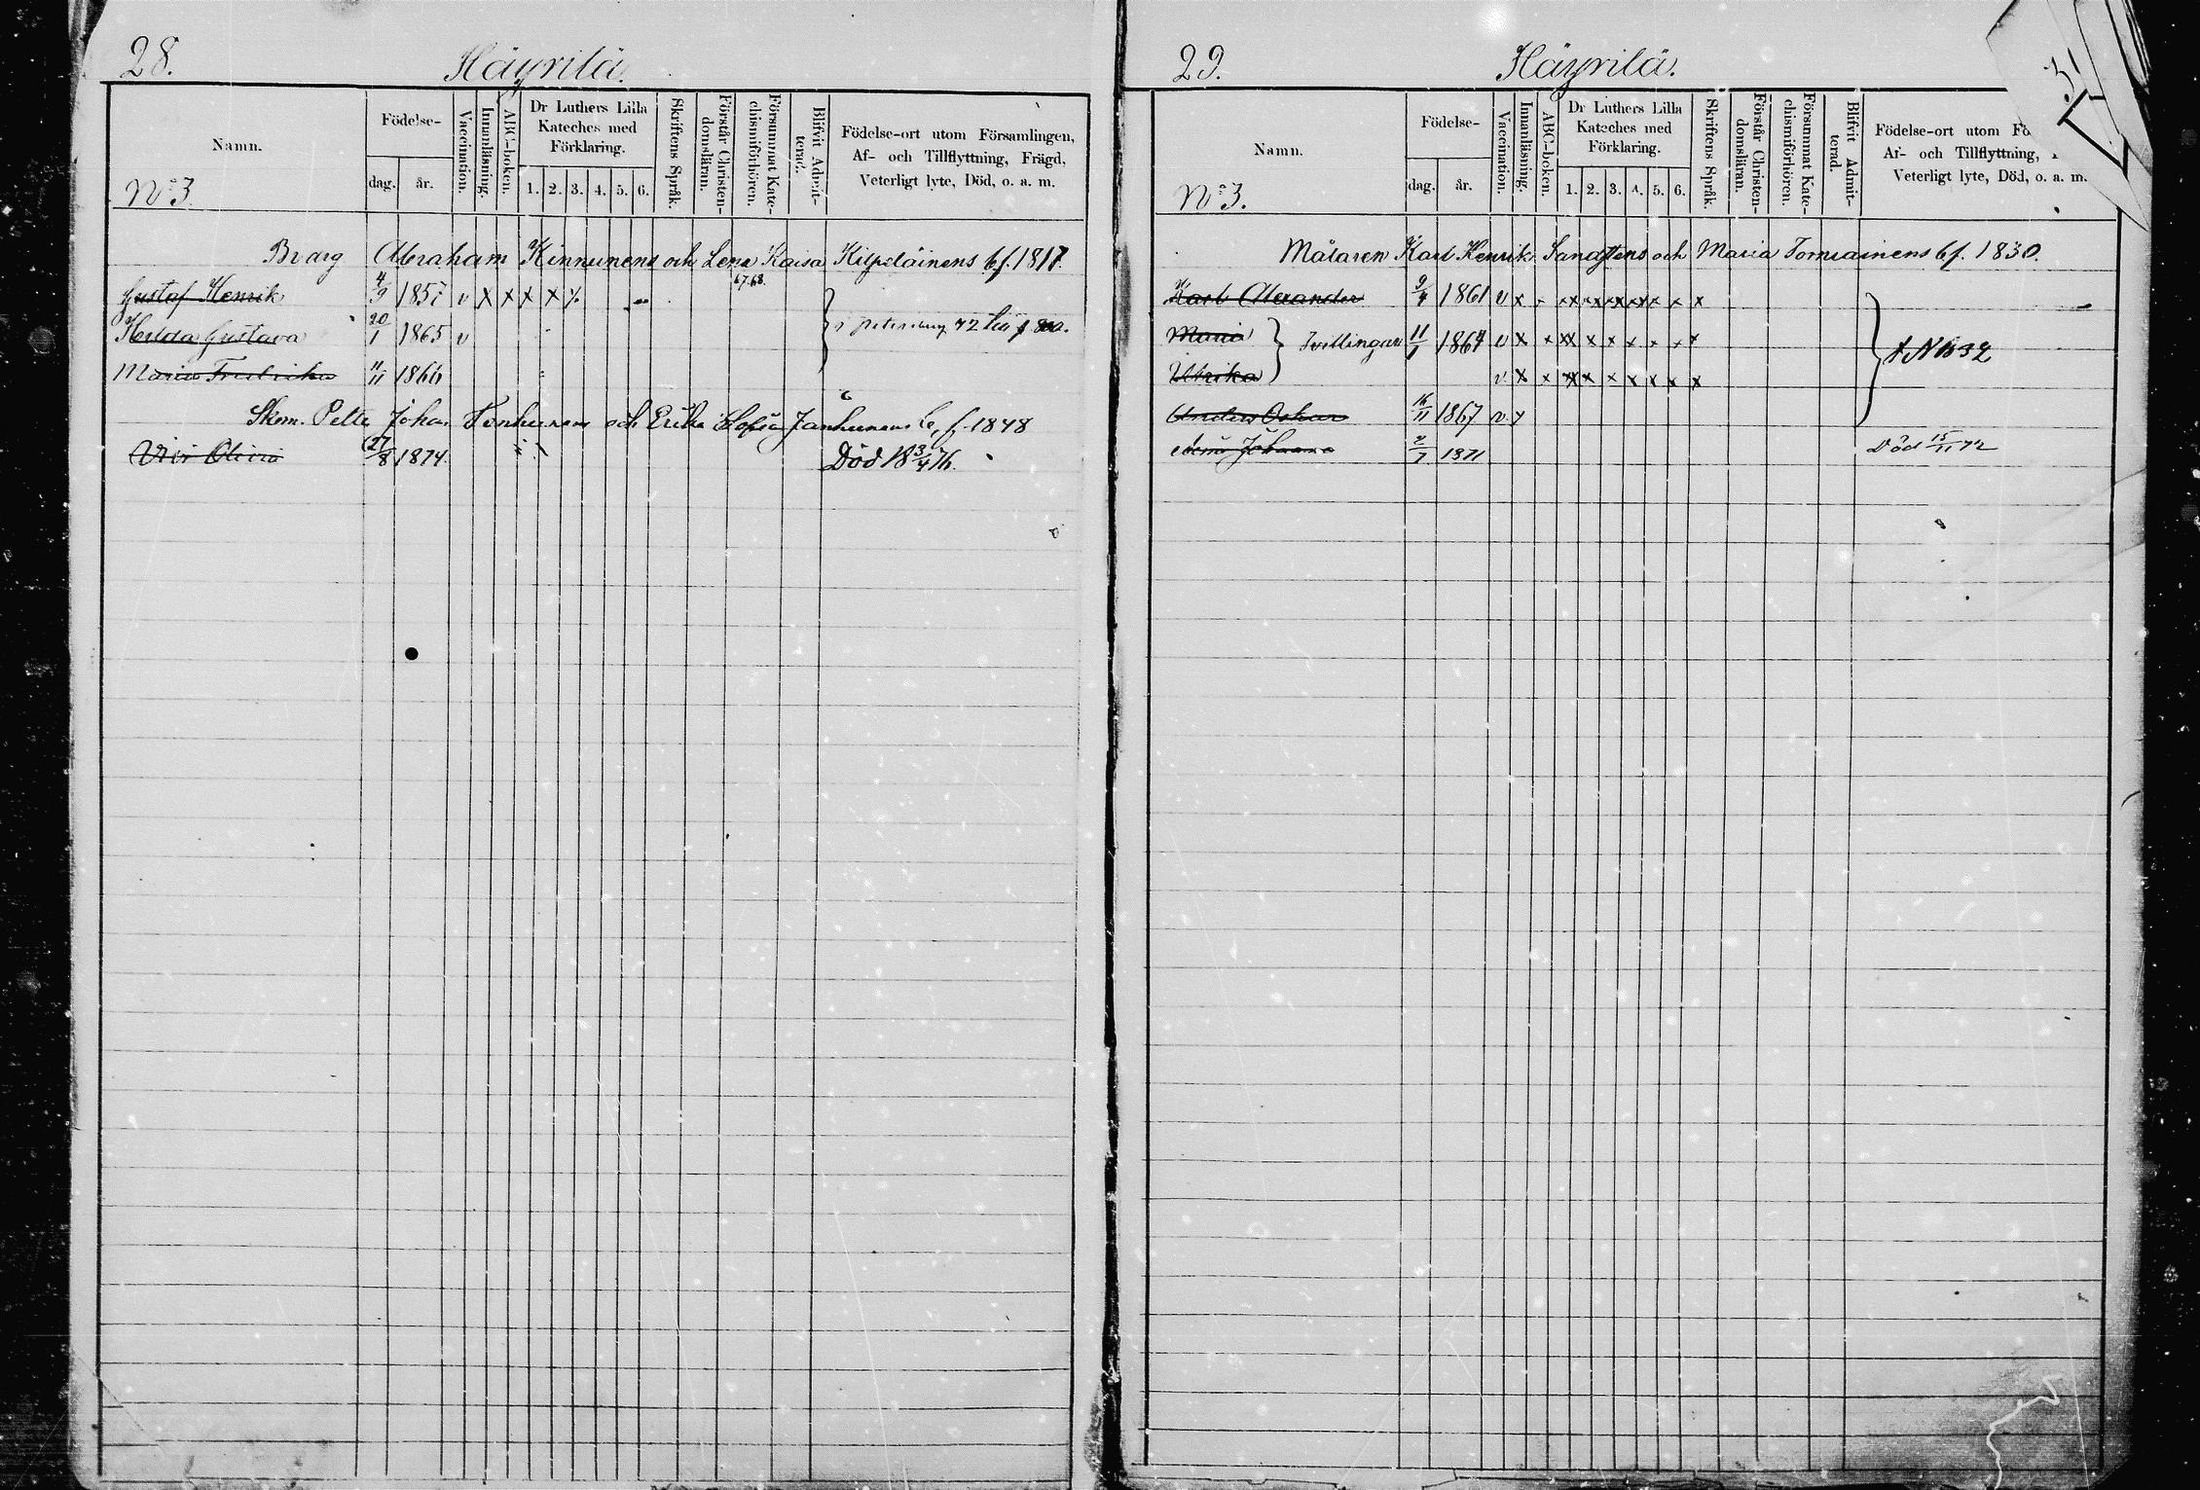 28.
Häyrilä.
Namn.
Nº 3.
Födelse-
dag.
år.
Vaccination.
Innanläsning.
ABC-boken.
Dr Luthers Lilla
Kateches med
Förklaring.
1. 2. 3. 4. 5. 6.
Skriftens Språk.
Förstår Christen-
domsläran.
Försummat Kate-
chismiförhören.
Blifvit Admit-
terad.
Födelse-ort utom Församlingen,
Af- och Tillflyttning, Frägd,
Veterligt lyte, Död, o. a. m.
Abraham Kinnunens och Lena Kaisa b.f. 1817.
67.68.
Gustaf Henrik 4/9 1857 v x x x x
Hilda Gustava 20/1 1865 v
Petersburg 72
Maria Fredrika 11/11 1866
Johan och Erika Sofia Janhunens b. f. 1848
27/8 1874. Död 18 3/4 76.
29.
Häyrilä.
Namn.
Nº 3.
Födelse-
dag.
år.
Vaccination.
Innanläsning.
ABC-boken.
Dr Luthers Lilla
Kateches med
Förklaring.
1. 2. 3. 4. 5. 6.
Skriftens Språk.
Förstår Christen-
domsläran.
Försummat Kate-
chismiförhören.
Blifvit Admit-
terad.
Födelse-ort utom
Af- och Tillflyttning,
Veterligt lyte, Död, o. a. m.
Målaren Karl Henrik och Maria b.f. 1830.
Karl Alexander 9/4 1861 v x
Maria } Tvillingar 11/1 1864 v x
Ulrika v x
Anders Oskar 16/11 1867 v
Johanna 1871 Död 15/11 72